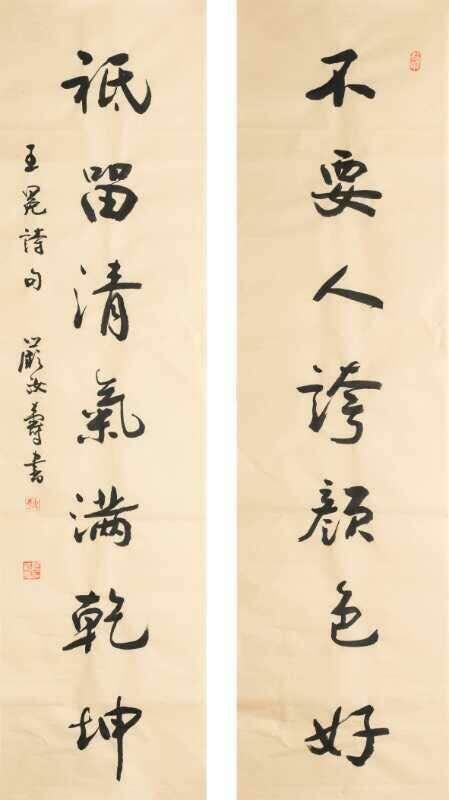 不要人誇顔色好
祇留清氣滿乾坤
王冕詩句 嚴汝壽書